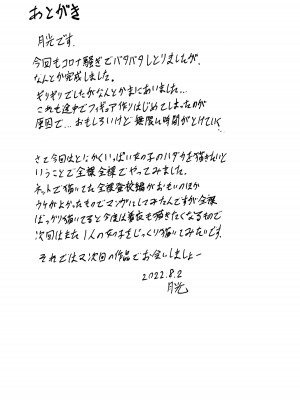 あとがき
月光です。
今回もコロナ騒ぎでバタバタしとりましたが、
なんとか完成しました。
ギリギリでしたがなんとかまにあいました…
これも途中でフィギュア作りはじめてしまったのが
原因で…おもしろいけど無限に時間がとけていく
さて今回はとにかくいっぱい女の子のハダカを描きたいと
いうことで全裸全裸でやってみました。
ネットで描いてた全裸登校編がおもいのほか
ウケがよかったものでマンガにしてみたんですが全裸
ばっかり描いてると今度は着衣も描きたくなる初で
次回はまた1人の女の子をじっくり描いてみたいです。
それではマタ次回の作品でお会いしましょー
2022.8.2
月光